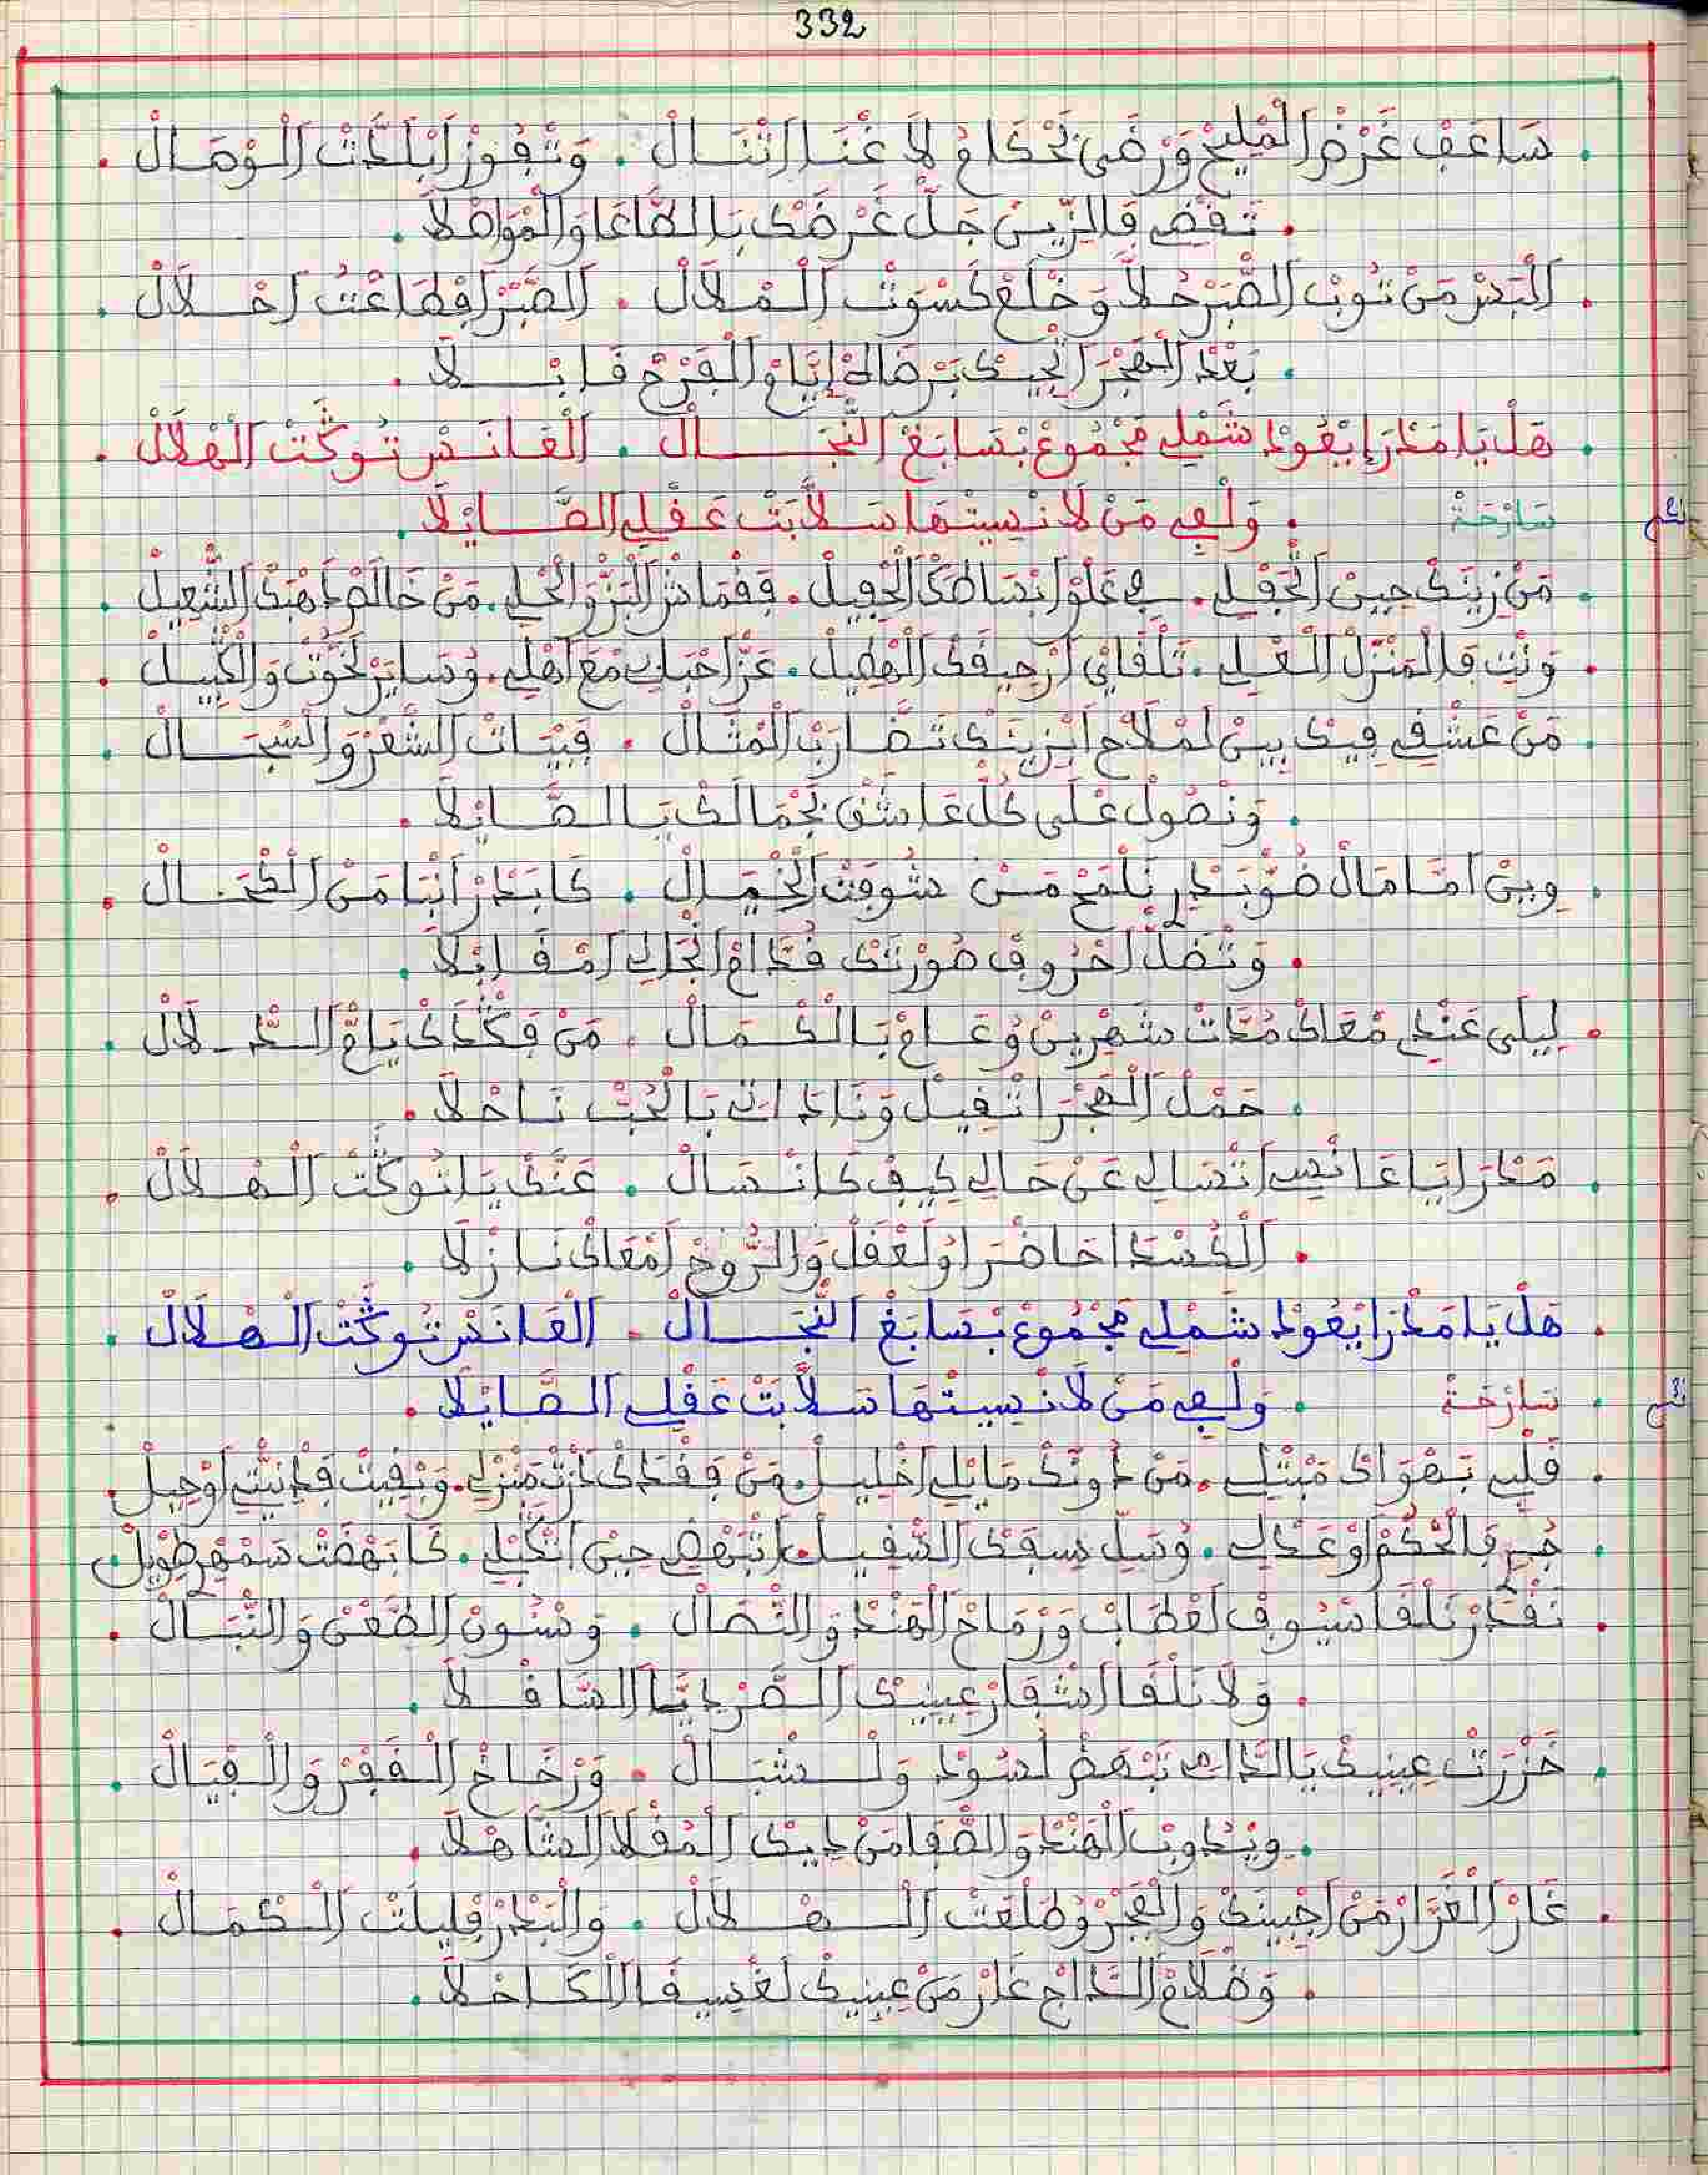 332
سَاعَفْ غَرْضْ الْمْلِيحْ وَرْضَى بَحْكَامُ لَا غْنَا تْنَالْ . وَتْفُوزْ ابْلَدَّتْ الْوْصَالْ .
. تَقْضِي قَالزِّينْ جَلّْ غَرْضَكْ بَالطَّاعَا وَالْمْوَاصْلَا .
الْبَسْ مَنْ تُوبْ الصّْبَرْ حُلَّا وَخْلَعْ كَسْوَتْ الْمْلَالْ . الصّْبَرْ افْطَاعْتُ احْلَالْ .
. بَعْدْ الْهْجَرْ ايْجِيكْ بَرْضَاهْ إيَّامْ الْفَرْحْ قَابْلَا .
هَلْ يَا مَدْرَا يْعُودْ شَمْلِي مَجْمُوعْ بْسَابَغْ النّْجَالْ . الْعَانَسْ تُوكَّتْ الْهْلَالْ .
سَارْحَةْ . وَلْفِي مَنْ لَا نْسِيتْهَا سَلَّابَتْ عَقْلِي الصَّايْلَا .
مَنْ زِينَكْ حِينْ اتَّجْفِلِي . فِي عْلُوّْ ابْسَاطَكْ الْحْفِيلْ . فَقْمَاشْ الْبَزّْ وَالْحْلِي . مَنْ خَالَصْ دَهْبَكْ الشّْعِيلْ .
وَنْتِ فَالْمَنْزَلْ الْعْلِي . تَلْقَايْ ارْحِيقَكْ الْهْطِيلْ . عَزّْ احْبَابِي مْعَ اهْلِي . وُسَايَرْ لَخْوُتْ وَالْكْبِيلْ .
مَنْ عَشْقِي فِيكْ بِينْ لَمْلَاحْ ابْزِينَكْ تَضَّارَبْ الْمْثَالْ . فَبْيَاتْ الشّْعَرْ وَالسّْجَالْ .
. وَنْصُولْ عْلَى كُلّْ عَاشَقْ بَجْمَالَكْ يَا الصَّايْلَا .
وِينْ امْثَالْ ضُوّْ بَدْرِي نَلْمَحْ مَنْ شُوفْتْ الْخْيَالْ . كَا بَدْرْ انْبَا مَنْ الْكْحَالْ .
. وَتْضَلّْ احْرُوفْ صُورْتَكْ قُدَّامْ انْجَالِي امْقَابْلَا .
لِيلَى عَنْدِي مْعَاكْ مُدَّاتْ شَهْرِينْ وُعَامْ بَالْكْمَالْ . مَنْ فَقْدَكْ يَامّْ الدّْلَالْ .
. حَمْلْ الْهْجَرْ اتْقِيلْ وَنَا دَاتِي بَالْحُبّْ نَاحْلَا .
مَدْرَا يَا عَانْسِي اتْسَالِي عَنْ حَالِي كِيفْ كَانْسَالْ . عَنَّكْ يَا تُوكَّتْ الْهْلَالْ .
. الْكَسْدَا حَاضْرَا وُلَعْقَلْ وَالرُّوحْ امْعَاكْ نَازْلَا .
هَلْ يَا مَدْرَا يْعُودْ شَمْلِي مَجْمُوعْ بْسَابَغْ النّْجَالْ . الْعَانَسْ تُوكَّتْ الْهْلَالْ .
سَارْحَةْ . وَلْفِي مَنْ لَا نْسِيتْهَا سَلَّابَتْ عَقْلِي الصَّايْلَا .
قَلْبِي بَهْوَاكْ مَبْتْلِي . مَنْ دُونَكْ مَا يْلِي اخْلِيلْ . مَنْ فَقْدَكْ دَرْتْ مَنْزْلِي . وَبْقِيتْ فَدَنْيْتِي اوْحِيلْ .
جُرِ فَالْحُكْمْ اوْ عَدْلِي . وُسَلِّ سِيفَكْ الصّْقِيلْ . تَبْهْضِي حِينْ اتْكَبْلِي . كَا بَهْضَتْ سَمْهْرِ طْوِيلْ .
نَقْدَرْ نَلْقَا سْيُوفْ لَعْطَابْ وَرْمَاحْ الْهَنْدْ وَالنّْصَالْ . وَسْنُونْ الطّْعَنْ وَالنّْبَالْ .
. وَلَا نَلْقَا اشْفَارْ عِينِيكْ الضَّرْدِيَّا السَّاقْلَا .
خَزْرَتْ عِينِيكْ يَا الدَّامِي تَبْهَضْ لَسْوُدْ وَلْشْبَالْ . وَرْخَاخْ الْقْفَرْ وَالْفْيَالْ .
. وِيْدُوبْ الْهَنْدْ وَالصّْفَا مَنْ دِيكْ الْمُقْلَا الشَّاهْلَا .
غَارْ الْغْرَارْ مَنْ اجْبِينَكْ وَالْفْجَرْ وُطَلْعَتْ الْهْلَالْ . وَالْبْدَرْ فْلِيلْتْ الْكْمَالْ .
. وَظْلَامْ الدَّاجْ غَارْ مَنْ عِينِيكْ لَغْسِيقَا الْكَاحْلَا .